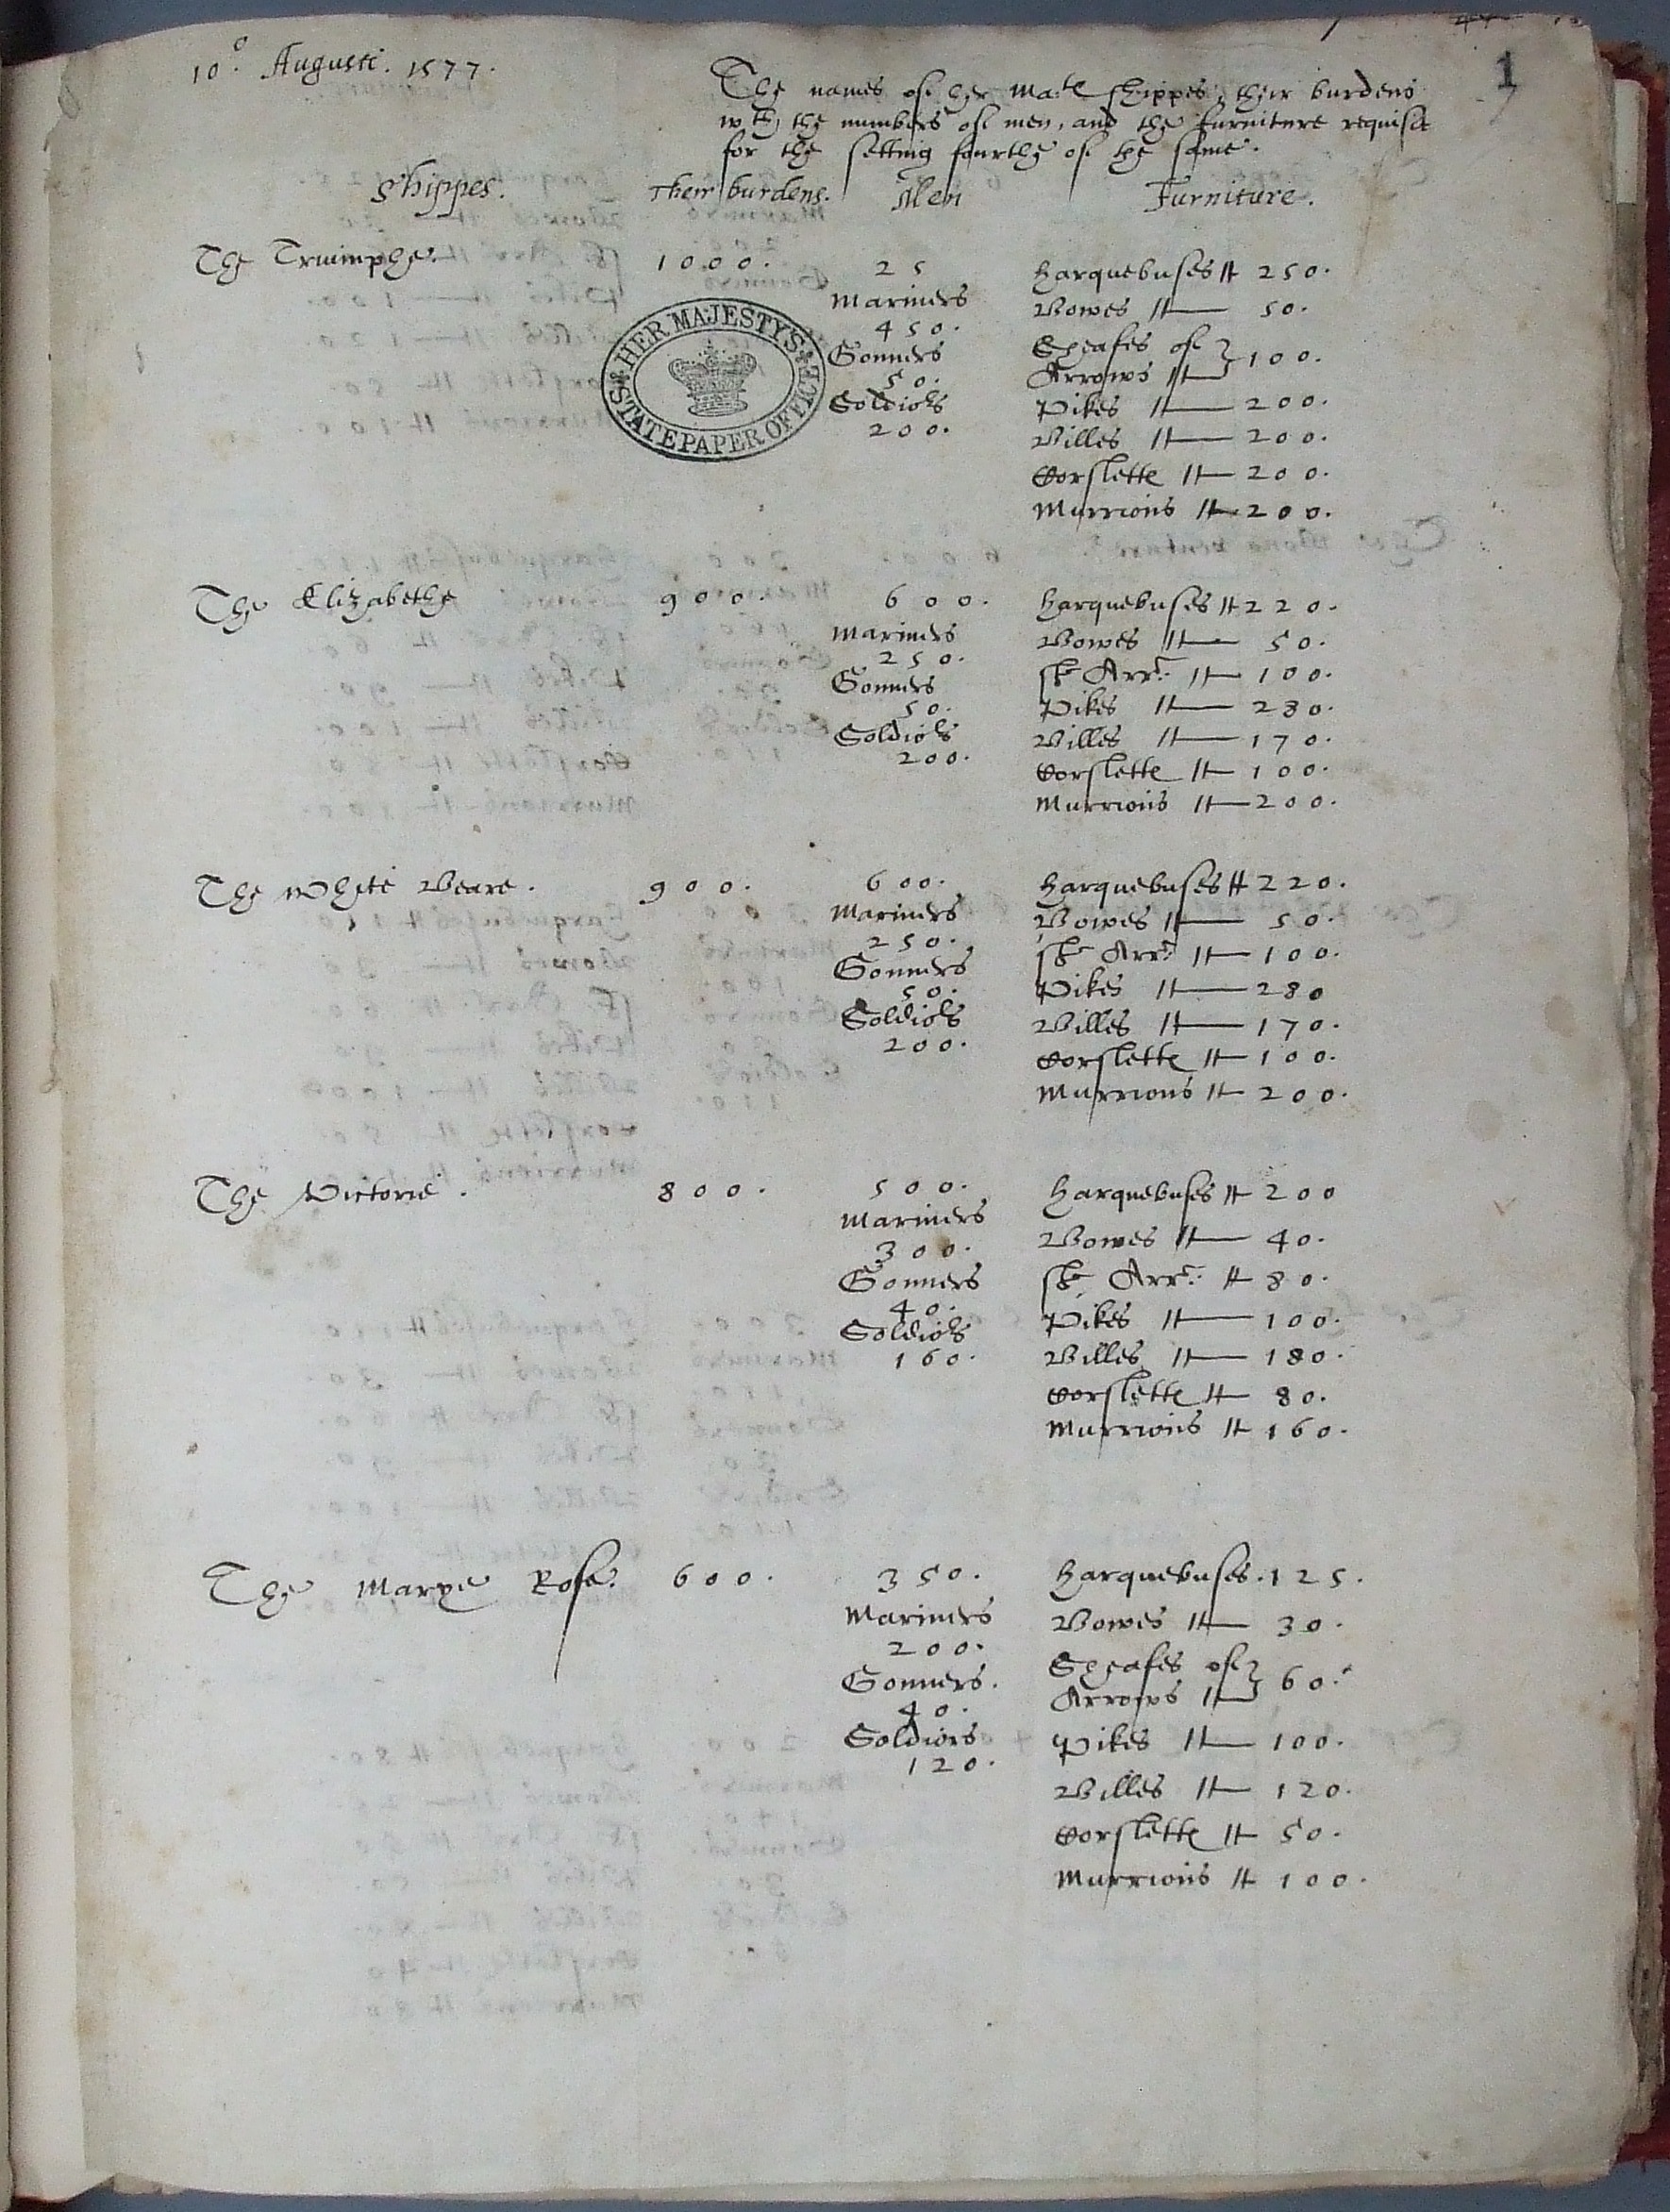 10o. Augusti. 1577.
1
The names of her Matie shippes, their burdens
wth the numbers of men, and the furniture requisit
for the setting fourthe of the same.
Shippes. Their burdens. Men Furniture.
The Triumphe. 1000. 25 Harquebuses 250.
Mariners Bowes 50.
450. Sheafes of
Gonners Arrows 100.
50. Pikes 200.
Soldiors Billes 200.
200. Corslette 200.
Murrions 200.
HER MAJESTY'S STATE PAPER OFFICE
The Elizabethe 900. 600. Harquebuses 220.
Mariners Bowes 50.
250. sh Arr: 100.
Gonners Pikes 280.
50. Billes 170.
Soldiors Corslette 100.
200. Murrions 200.
The White Beare. 900. 600. Harquebuses 220.
Mariners Bowes 50.
250. sh Arr: 100.
Gonners Pikes 280
50. Billes 170.
Soldiors Corslette 100.
200. Murrions 200.
The Victorie. 800. 500. Harquebuses 200
Mariners Bowes 40.
300. sh Arr: 80.
Gonners Pikes 100.
40. Billes 180.
Soldiors Corslette 80.
160. Murrions 160.
The Marye Rose. 600. 350. Harquebuses. 125.
Mariners Bowes 30.
200. Sheafes of
Gonners. Arrows 60.
40. Pikes 100.
Soldiors Billes 120.
120. Corslette 50.
Murrions 100.